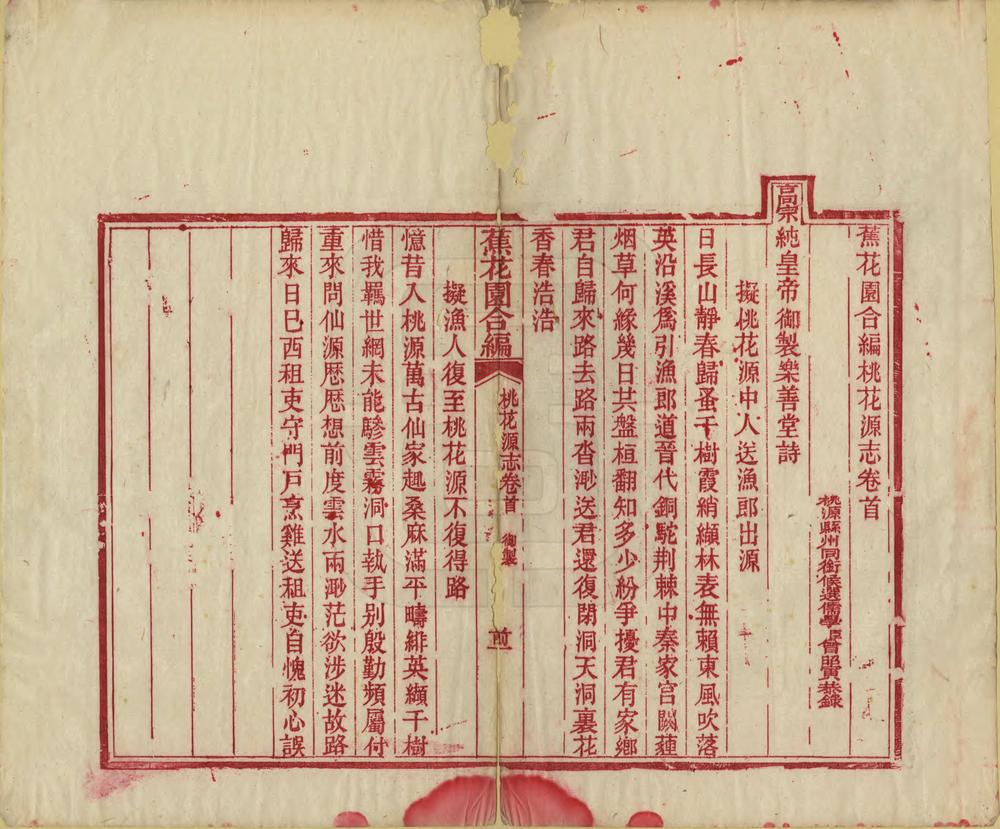 蕉花園合編桃花源志卷首
桃源縣州同銜候選儒學臣曾昭寅恭錄
高宗純皇帝御製樂善堂詩
擬桃花源中人送漁郎出源
日長山靜春歸蚤千樹霞綃纈林表無賴東風吹落
英沿溪爲引漁郎道晉代銅駝荆棘中秦家宮闕蓬
烟草何緣幾日共盤桓翻知多少紛爭擾君有家鄉
君自歸來路去路兩杳渺送君還復閉洞天洞裏花
香春浩浩
蕉花園合編
桃花源志卷首 御製
擬漁人復至桃花源不復得路
憶昔入桃源萬古仙家趣桑麻滿平疇緋英纈千樹
惜我羈世網未能驂雲霧洞口執手别殷勤頻屬付
重來問仙源歷歷想前度雲水兩渺茫欲涉迷故路
歸來日已西租吏守門戸烹雞送租吏自愧初心誤